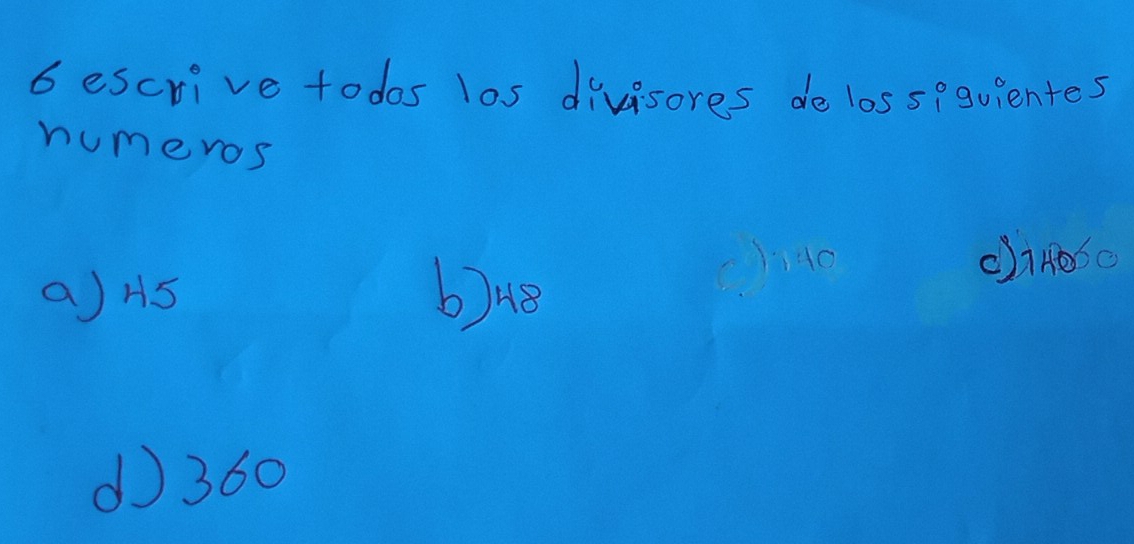 6 escrive todos los divisores de los siguientes
numeros
a) 45 b) 48 c) 140
d) 360